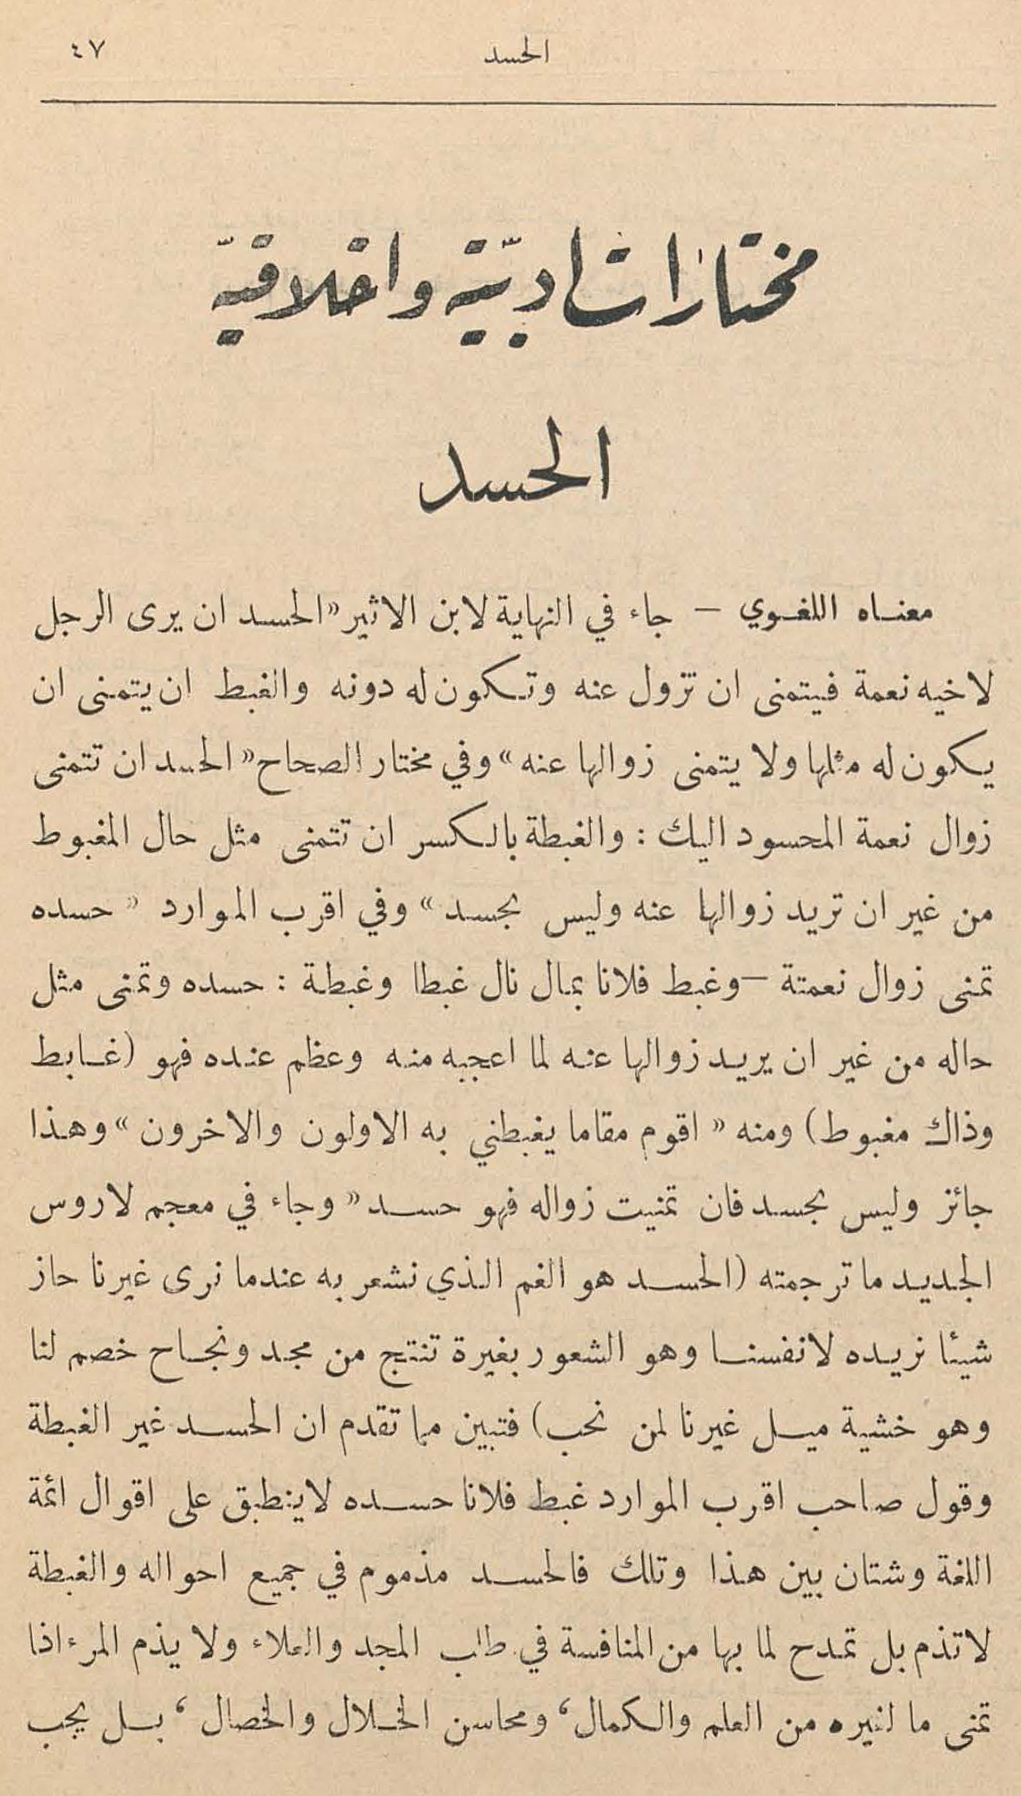 الحسد
٤٧
مختارات ادبيّة واخلاقيّة
الحسد
معناه اللغوي – جاء في النهاية لابن الاثير «الحسد ان يرى الرجل
لاخيه نعمة فيتمنى ان تزول عنه وتكون له دونه والغبط ان يتمنى ان
يكون له مثلها ولا يتمنى زوالها عنه» وفي مختار الصحاح «الحسد ان تتمنى
زوال نعمة المحسود اليك : والغبطة بالكسر ان تتمنى مثل حال المغبوط
من غير ان تريد زوالها عنه وليس بحسد» وفي اقرب الموارد « حسده
تمنى زوال نعمتة – وغبط فلانا بمال نال غبطا وغبطة : حسده وتمنى مثل
حاله من غير ان يريد زوالها عنه لما اعجبه منه وعظم عنده فهو (غابط
وذاك مغبوط) ومنه « اقوم مقاما يغبطني به الاولون والاخرون» وهذا
جائز وليس بحسد فان تمنيت زواله فهو حسد« وجاء في معجم لاروس
الجديد ما ترجمته (الحسد هو الغم الذي نشعر به عندما نرى غيرنا حاز
شيئا نريده لانفسنا وهو الشعور بغيرة تنتج من مجد ونجاح خصم لنا
وهو خشية ميل غيرنا لمن نحب) فتبين مما تقدم ان الحسد غير الغبطة
وقول صاحب اقرب الموارد غبط فلانا حسده لاينطبق على اقوال ائمة
اللغة وشتان بين هذا وتلك فالحسد مذموم في جميع احواله والغبطة
لا تذم بل تمدح لما بها من المنافسة في طلب المجد والعلاء ولا يذم المرء اذا
تمنى ما لغيره من العلم والكمال، ومحاسن الخلال والخصال، بل يجب